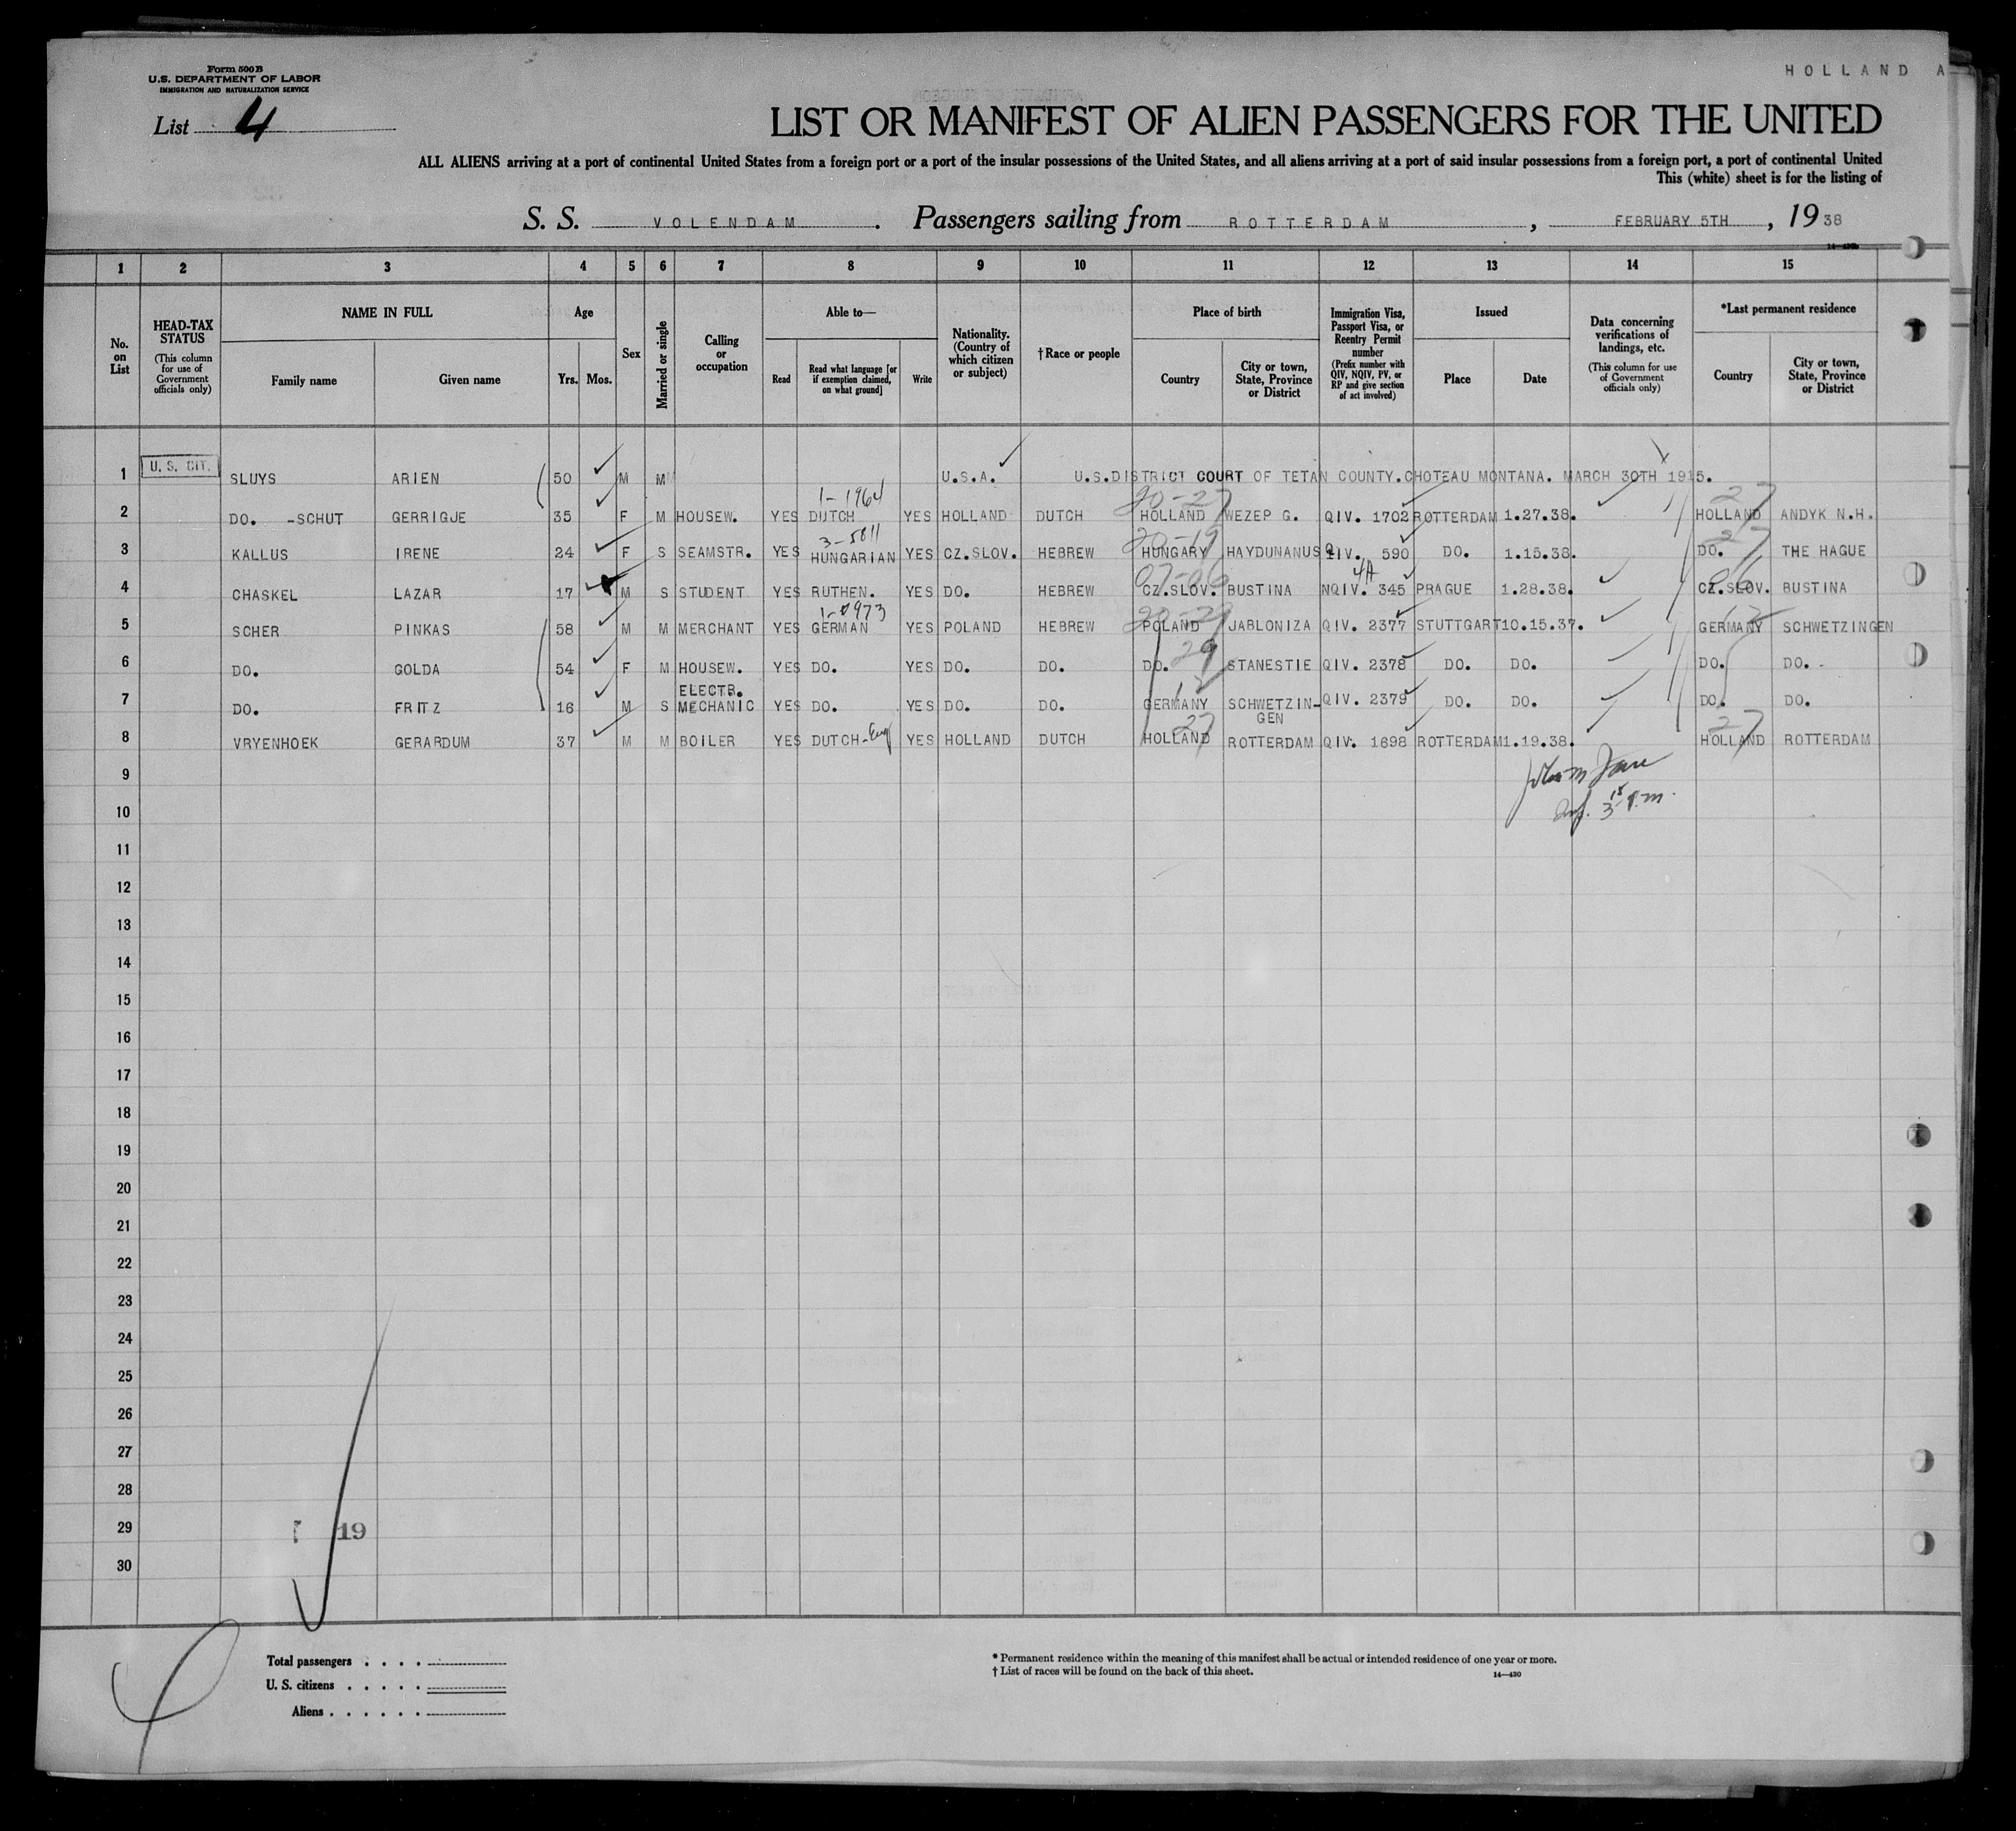 HOLLAND A
Form 500 B
U.S. DEPARTMENT OF LABOR
IMMIGRATION AND NATURALIZATION SERVICE
List 4
LIST OR MANIFEST OF ALIEN PASSENGERS FOR THE UNITED
ALL ALIENS arriving at a port of continental United States from a foreign port or a port of the insular possessions of the United States, and all aliens arriving at a port of said insular possessions from a foreign port, a port of continental United
This (white) sheet is for the listing of
S. S. VOLENDAM. Passengers sailing from ROTTERDAM, FEBRUARY 5TH, 1938
1 2 3 4 5 6 7 8 9 10 11 12 13 14 15
No. on List
HEAD-TAX STATUS (This column for use of Government officials only)
NAME IN FULL Family name Given name
Age Yrs. Mos.
Sex
Married or single
Calling or occupation
Able to— Read Read what language [or if exemption claimed, on what ground] Write
Nationality. (Country of which citizen or subject)
†Race or people
Place of birth Country City or town, State, Province or District
Immigration Visa, Passport Visa, or Reentry Permit number (Prefix number with QIV, NQIV, PV, or RP and give section of act involved)
Issued Place Date
Data concerning verifications of landings, etc. (This column for use of Government officials only)
*Last permanent residence Country City or town, State, Province or District
1 U. S. CIT. SLUYS ARIEN 50 M M U.S.A. U.S.DISTRICT COURT OF TETAN COUNTY.CHOTEAU MONTANA. MARCH 30TH 1915.
1-1964 20-27 27
2 DO. -SCHUT GERRIGJE 35 F M HOUSEW. YES DUTCH YES HOLLAND DUTCH HOLLAND WEZEP G. QIV. 1702 ROTTERDAM 1.27.38. HOLLAND ANDYK N.H.
3-5811 20-19 27
3 KALLUS IRENE 24 F S SEAMSTR. YES HUNGARIAN YES CZ.SLOV. HEBREW HUNGARY HAYDUNANUS QIV. 590 DO. 1.15.38. DO. THE HAGUE
07-06 4A 06
4 CHASKEL LAZAR 17 M S STUDENT YES RUTHEN. YES DO. HEBREW CZ.SLOV. BUSTINA NQIV. 345 PRAGUE 1.28.38. CZ.SLOV. BUSTINA
1-0973 20-29 12
5 SCHER PINKAS 58 M M MERCHANT YES GERMAN YES POLAND HEBREW POLAND JABLONIZA QIV. 2377 STUTTGART 10.15.37. GERMANY SCHWETZINGEN
29
6 DO. GOLDA 54 F M HOUSEW. YES DO. YES DO. DO. DO. STANESTIE QIV. 2378 DO. DO. DO. DO.
12
7 DO. FRITZ 16 M S ELECTR. MECHANIC YES DO. YES DO. DO. GERMANY SCHWETZIN-GEN QIV. 2379 DO. DO. DO. DO.
27 27
8 VRYENHOEK GERARDUM 37 M M BOILER YES DUTCH-Eng YES HOLLAND DUTCH HOLLAND ROTTERDAM QIV. 1698 ROTTERDAM 1.19.38. HOLLAND ROTTERDAM
9
3 15 P.m.
10
11
12
13
14
15
16
17
18
19
20
21
22
23
24
25
26
27
28
29 19
30
Total passengers . . . .
U. S. citizens . . . . .
Aliens . . . . . .
* Permanent residence within the meaning of this manifest shall be actual or intended residence of one year or more.
† List of races will be found on the back of this sheet.
14—430